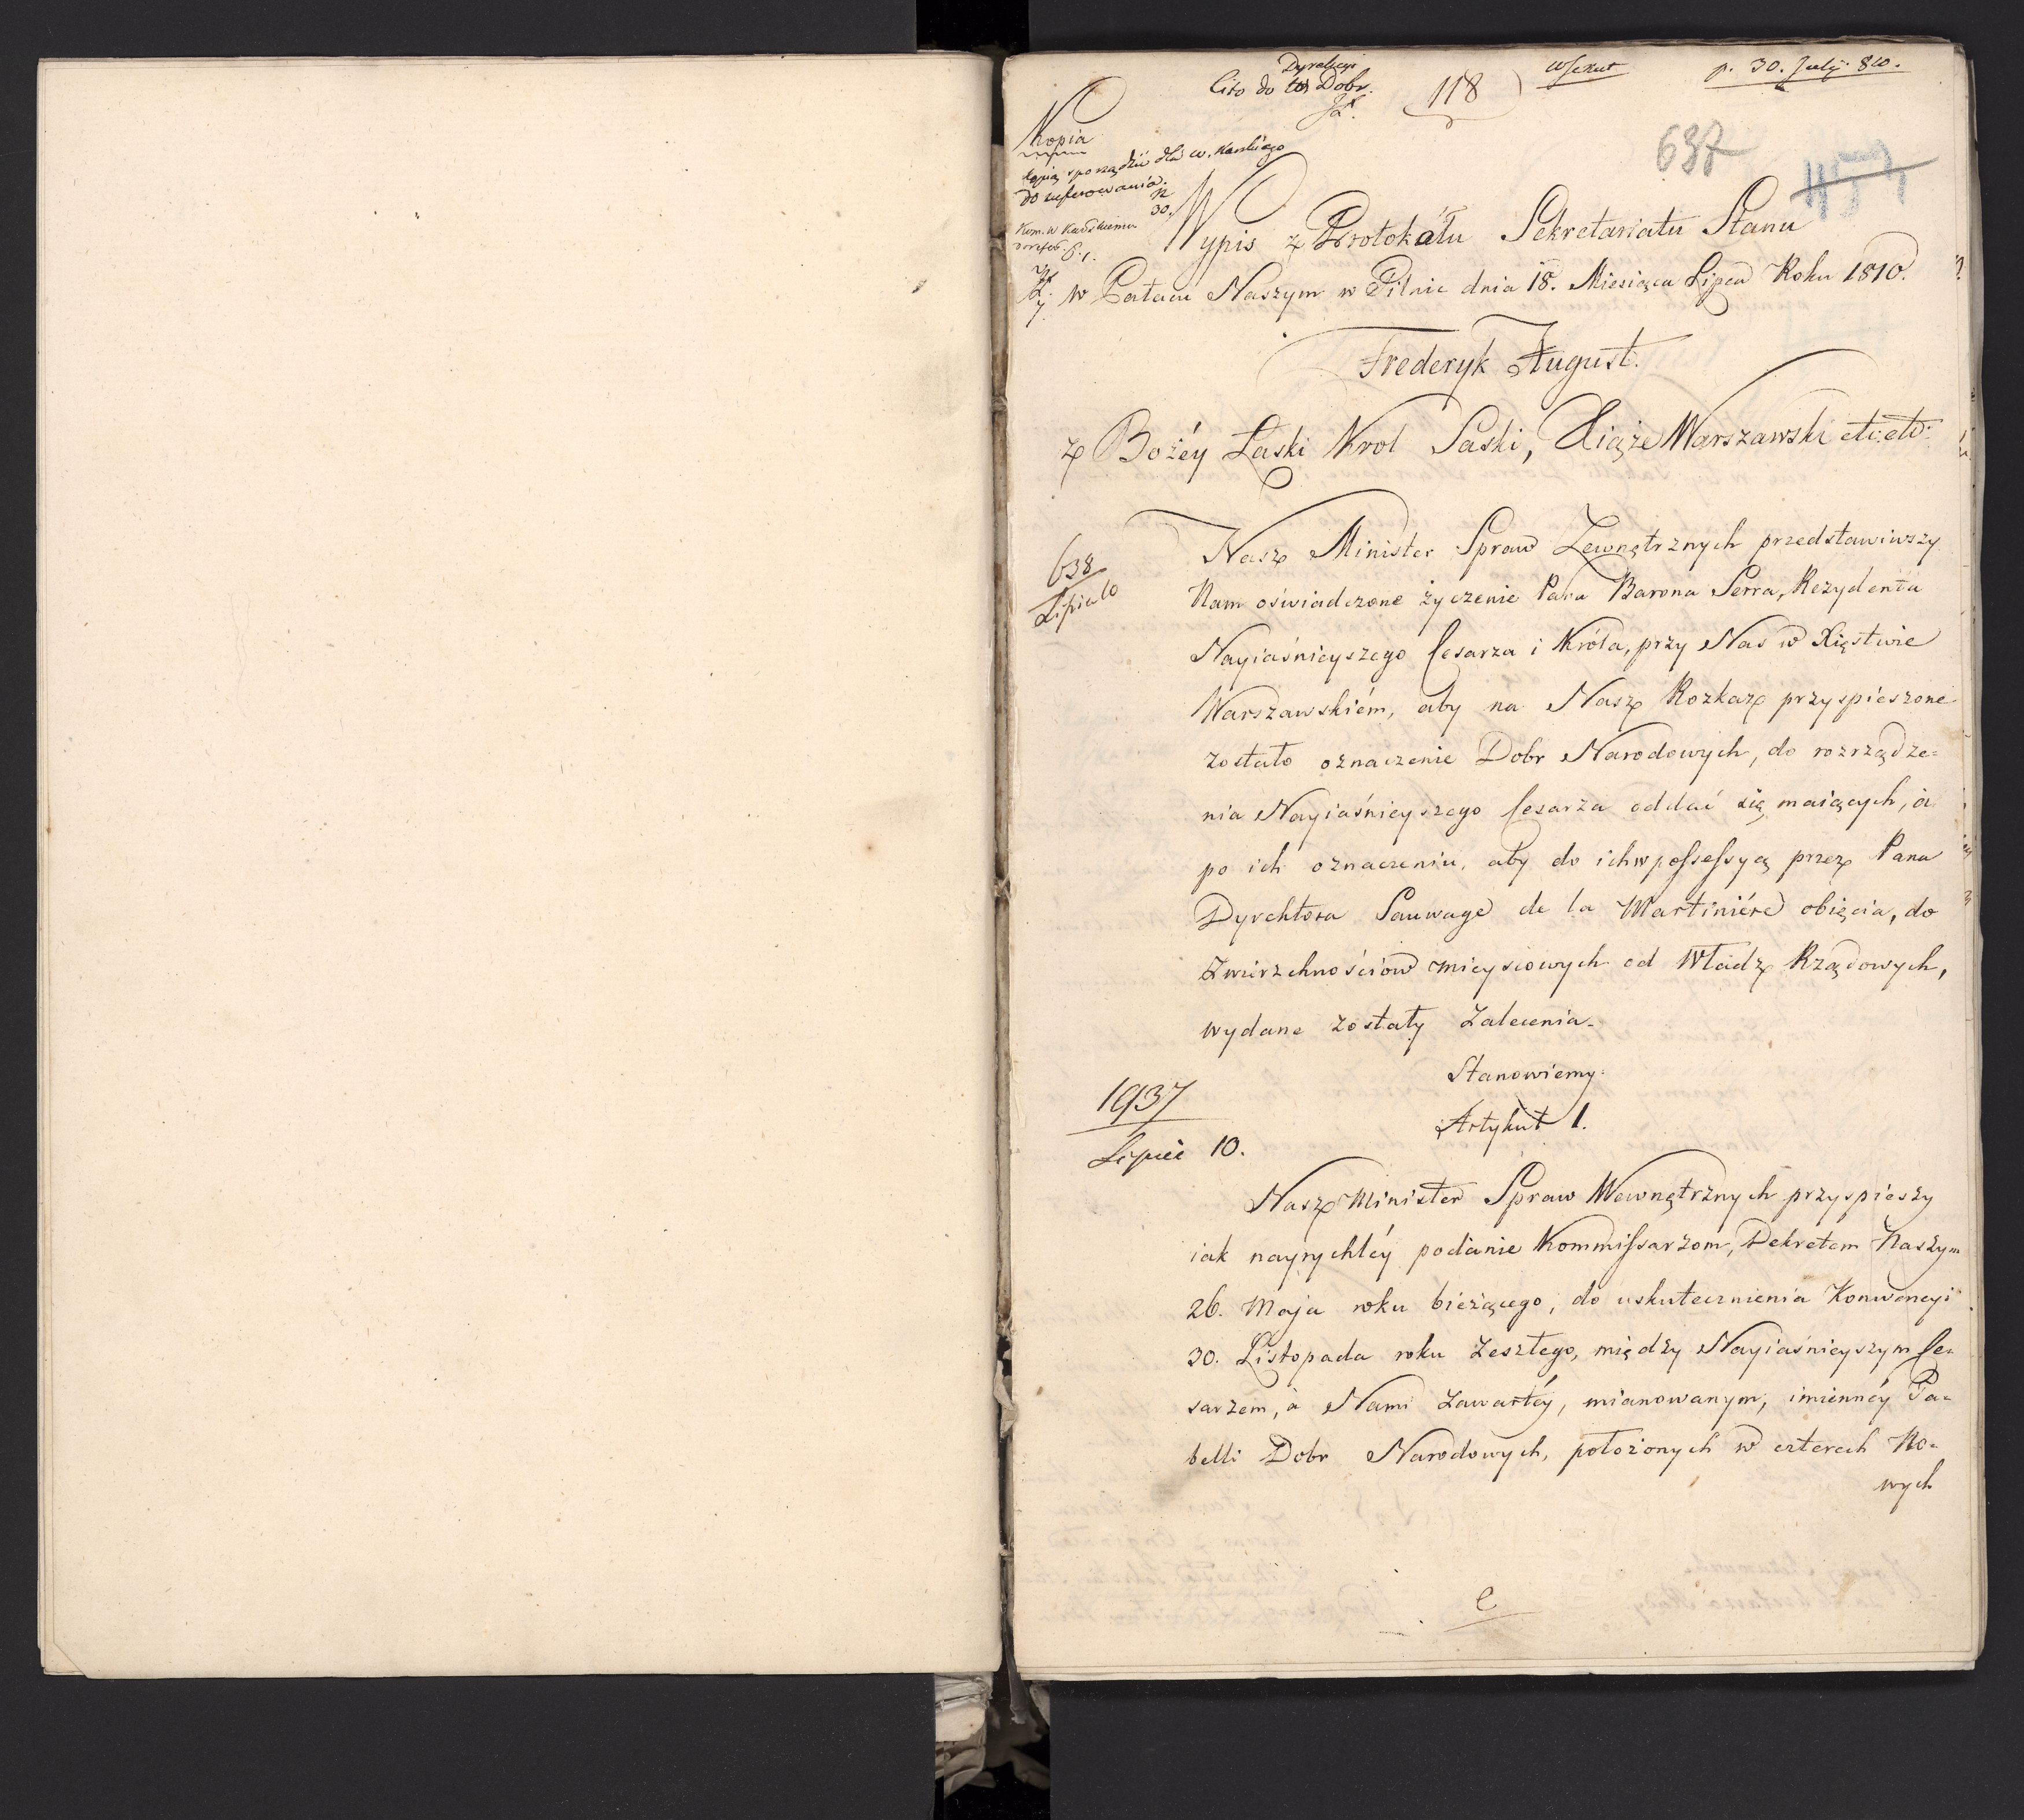 Dyrekcyi
Cito do Dobr.
118
p. 30. July 810.
637
Kopia
kopią sporządzić dla w. Karskiego
do referowania.
30.
Wypis z Protokółu Sekretariatu Stanu
w Pałacu Naszym w Pilnic dnia 18. Miesiąca Lipca Roku 1810.
Frederyk August.
z Bożéy Łaski Krol Saski, Xiąże Warszawski etc: etc:
638
Lipca 10
Nasz Minister Spraw Zewnętrznych przedstawiwszy
Nam oświadczone życzenie Pana Barona Serra, Rezydenta
Nayiaśnieyszego Cesarza i Króla, przy Nas w Xięstwie
Warszawskiém, aby na Nasz Rozkaz przyspieszone
zostało oznaczenie Dobr Narodowych, do rozrządze=
nia Nayiaśnieyszego Cesarza oddać się maiących, a
po ich oznaczeniu, aby do ich w possessyą przez Pana
Dyrektora Sauvage de la Martiniére obięcia, do
Zwierzchnościów mieyscowych od Władz Rządowych,
wydane zostały Zalecenia.
Stanowiemy:
Artykuł 1.
1937
Lipiec 10.
Nasz Minister Spraw Wewnętrznych przyspieszy
iak nayrychléy podanie Kommissarzom, Dekretem Naszym
26. Maja roku bieżącego, do uskutecznienia Konwencyi
30. Listopada roku Zeszłego, między Nayiaśnieyszym Ce=
sarzem, a Nami zawartéy, mianowanym, imiennéy Ta=
belli Dobr Narodowych, położonych w czterech No=
wych